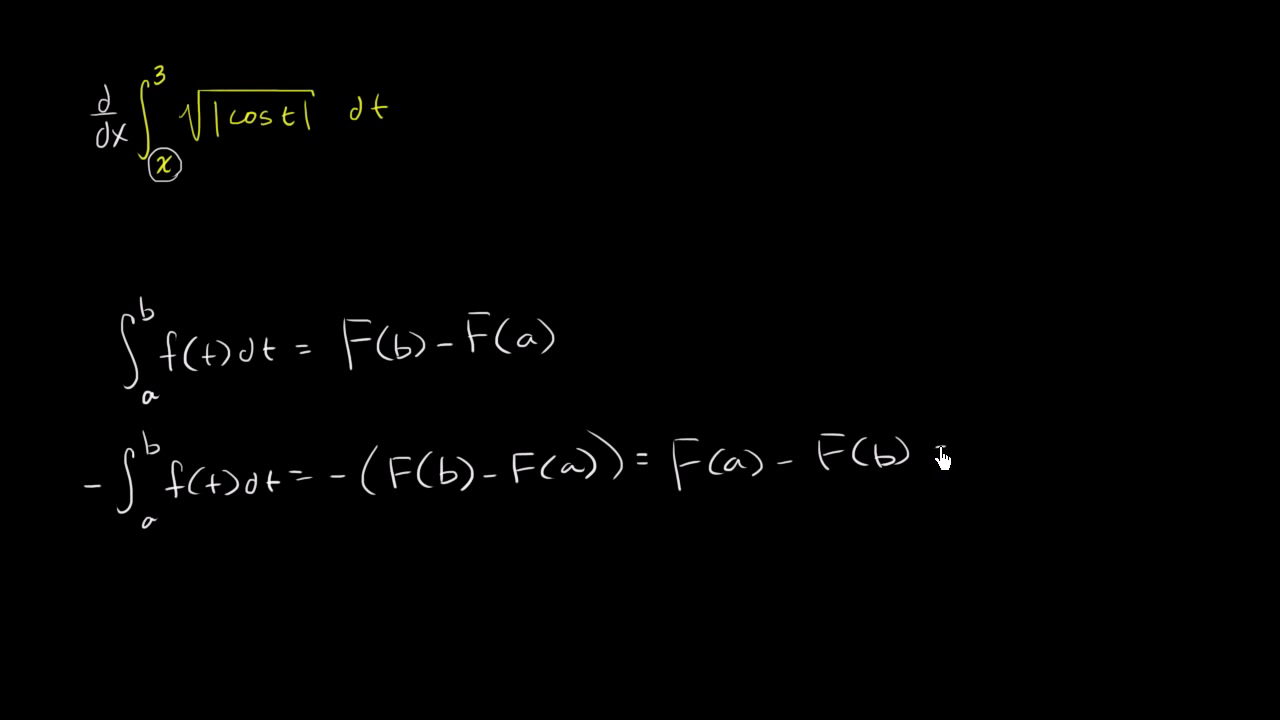 d/dx ∫_x^3 √|cos t| dt
∫_a^b f(t)dt = F(b) - F(a)
- ∫_a^b f(t)dt = -(F(b) - F(a)) = F(a) - F(b) =